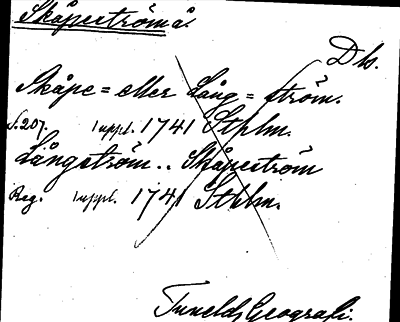 Skåpeström å.
Dls.
Skåpe= eller Lång=ström.
S. 207. uppl. 1741 Sthlm.
Långström.. Skåpeström
Reg. uppl. 1741 Sthlm.
Tunelds Geografi.